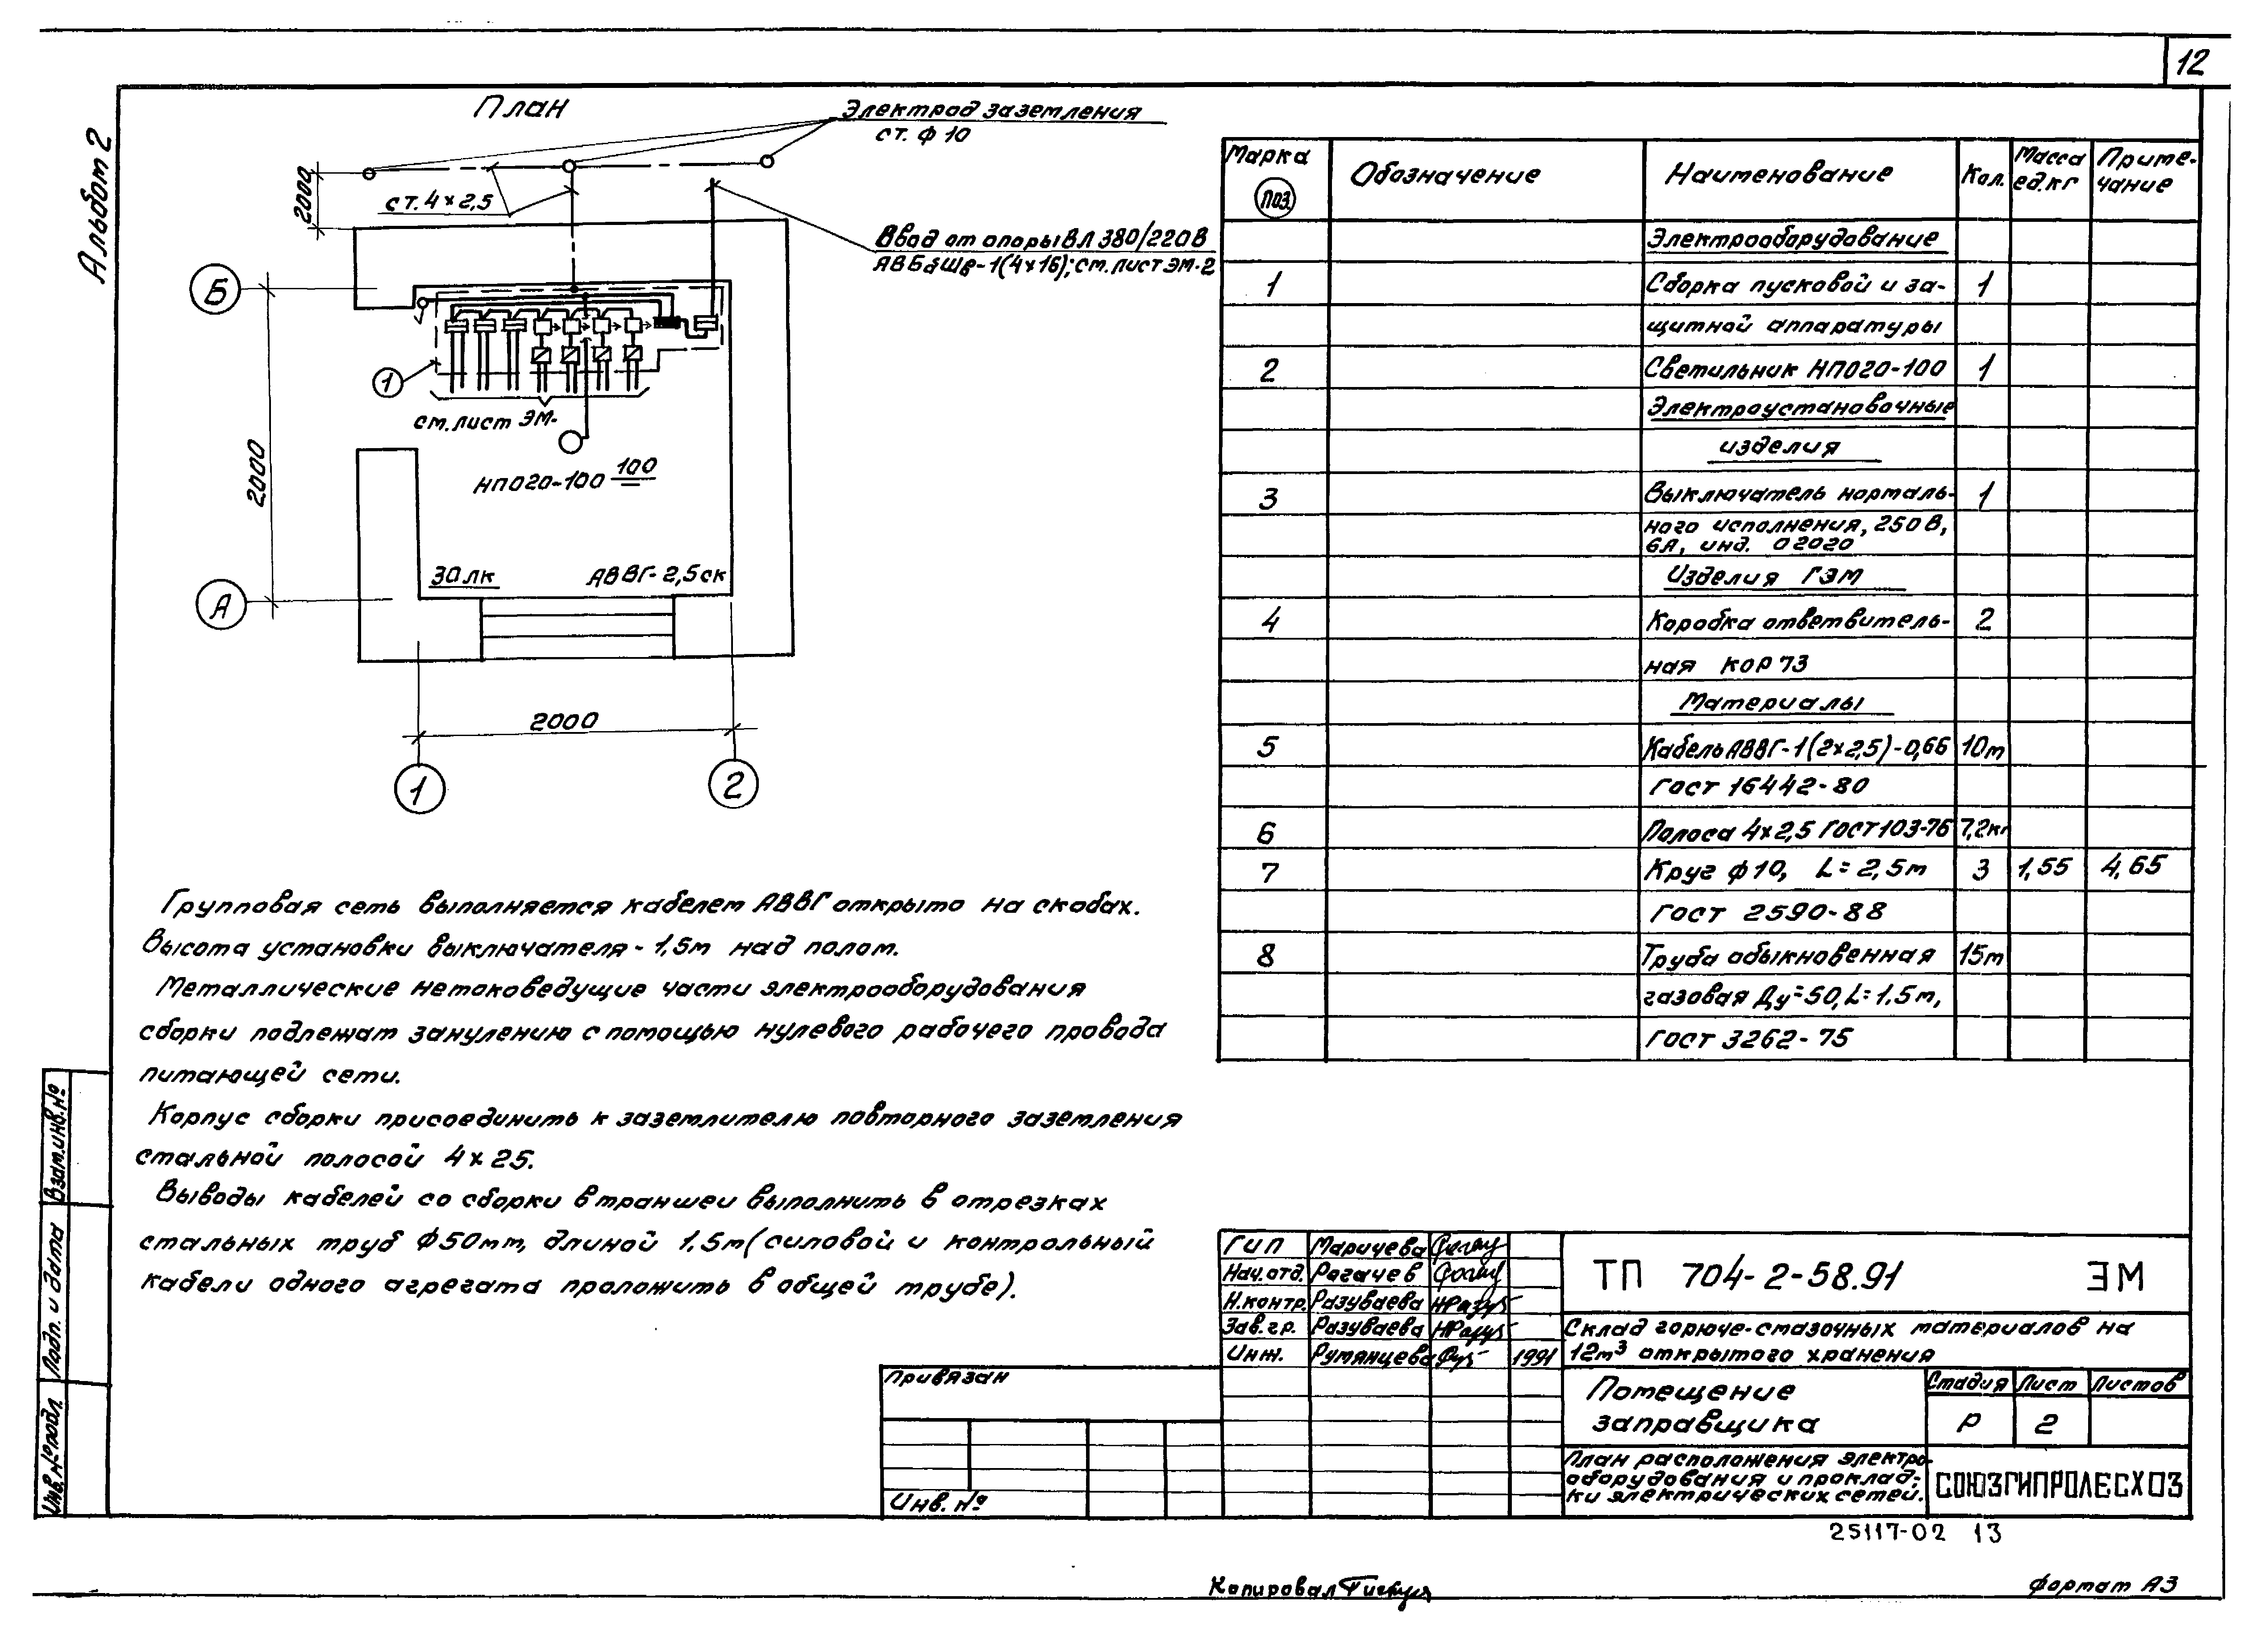 12
Альбом 2
План
Электрод заземления
ст. ф 10
2000
ст. 4×2,5
Ввод от опоры ВЛ 380/220В
АВБбШв-1(4×16); см. лист ЭМ-2
Б
1
см. лист ЭМ-
НПО20-100 100
2000
30 лк
АВВГ-2,5ск
А
2000
1
2
Марка
поз.
Обозначение
Наименование
Кол.
Масса
ед. кг
Приме-
чание
Электрооборудование
1 Сборка пусковой и за- 1
щитной аппаратуры
2 Светильник НПО20-100 1
Электроустановочные
изделия
3 Выключатель нормаль- 1
ного исполнения, 250В,
6А, инд. 02020
Изделия ГЭМ
4 Коробка ответвитель- 2
ная кор 73
Материалы
5 Кабель АВВГ-1(2×2,5)-0,66 10м
ГОСТ 16442-80
6 Полоса 4×2,5 ГОСТ 103-76 7,2кг
7 Круг ф10, L=2,5м 3 1,55 4,65
ГОСТ 2590-88
8 Труба обыкновенная 15м
газовая Ду=50, L=1,5м,
ГОСТ 3262-75
Групповая сеть выполняется кабелем АВВГ открыто на скобах.
Высота установки выключателя - 1,5м над полом.
Металлические нетоковедущие части электрооборудования
сборки подлежат занулению с помощью нулевого рабочего провода
питающей сети.
Корпус сборки присоединить к заземлителю повторного заземления
стальной полосой 4×25.
Выводы кабелей со сборки в траншеи выполнить в отрезках
стальных труб ф50мм, длиной 1,5м (силовой и контрольный
кабели одного агрегата проложить в общей трубе).
Взам.инв.№
Подп. и дата
Инв.№подл.
ГИП Маричева
Нач.отд. Рогачев
Н.контр. Разуваева
Зав.гр. Разуваева
Инж. Румянцева 1991
ТП 704-2-58.91 ЭМ
Склад горюче-смазочных материалов на
12м³ открытого хранения
Привязан
Инв. №
Помещение
заправщика
Стадия Лист Листов
Р 2
План расположения электро-
оборудования и проклад-
ки электрических сетей.
СОЮЗГИПРОЛЕСХОЗ
25117-02 13
Копировал
Формат А3